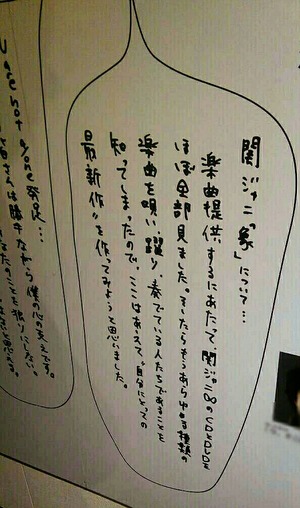 関ジャニ「象」について…
楽曲提供するにあたって、関ジャニ∞のCDとDVDを
ほぼ全部見ました。そしたらもうあらゆる種類の
楽曲を唄い、躍り、奏でている人たちであることを
知ってしまったので、ここはあえて、自分にとっての
最新作〃を作ってみようと思いました。
U are not alone 発足…
さんは勝手ながら僕の心の支えです。